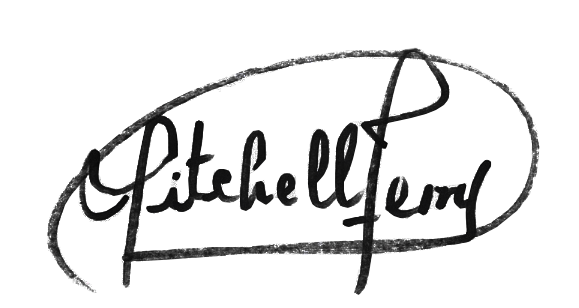 Mitchell Perry